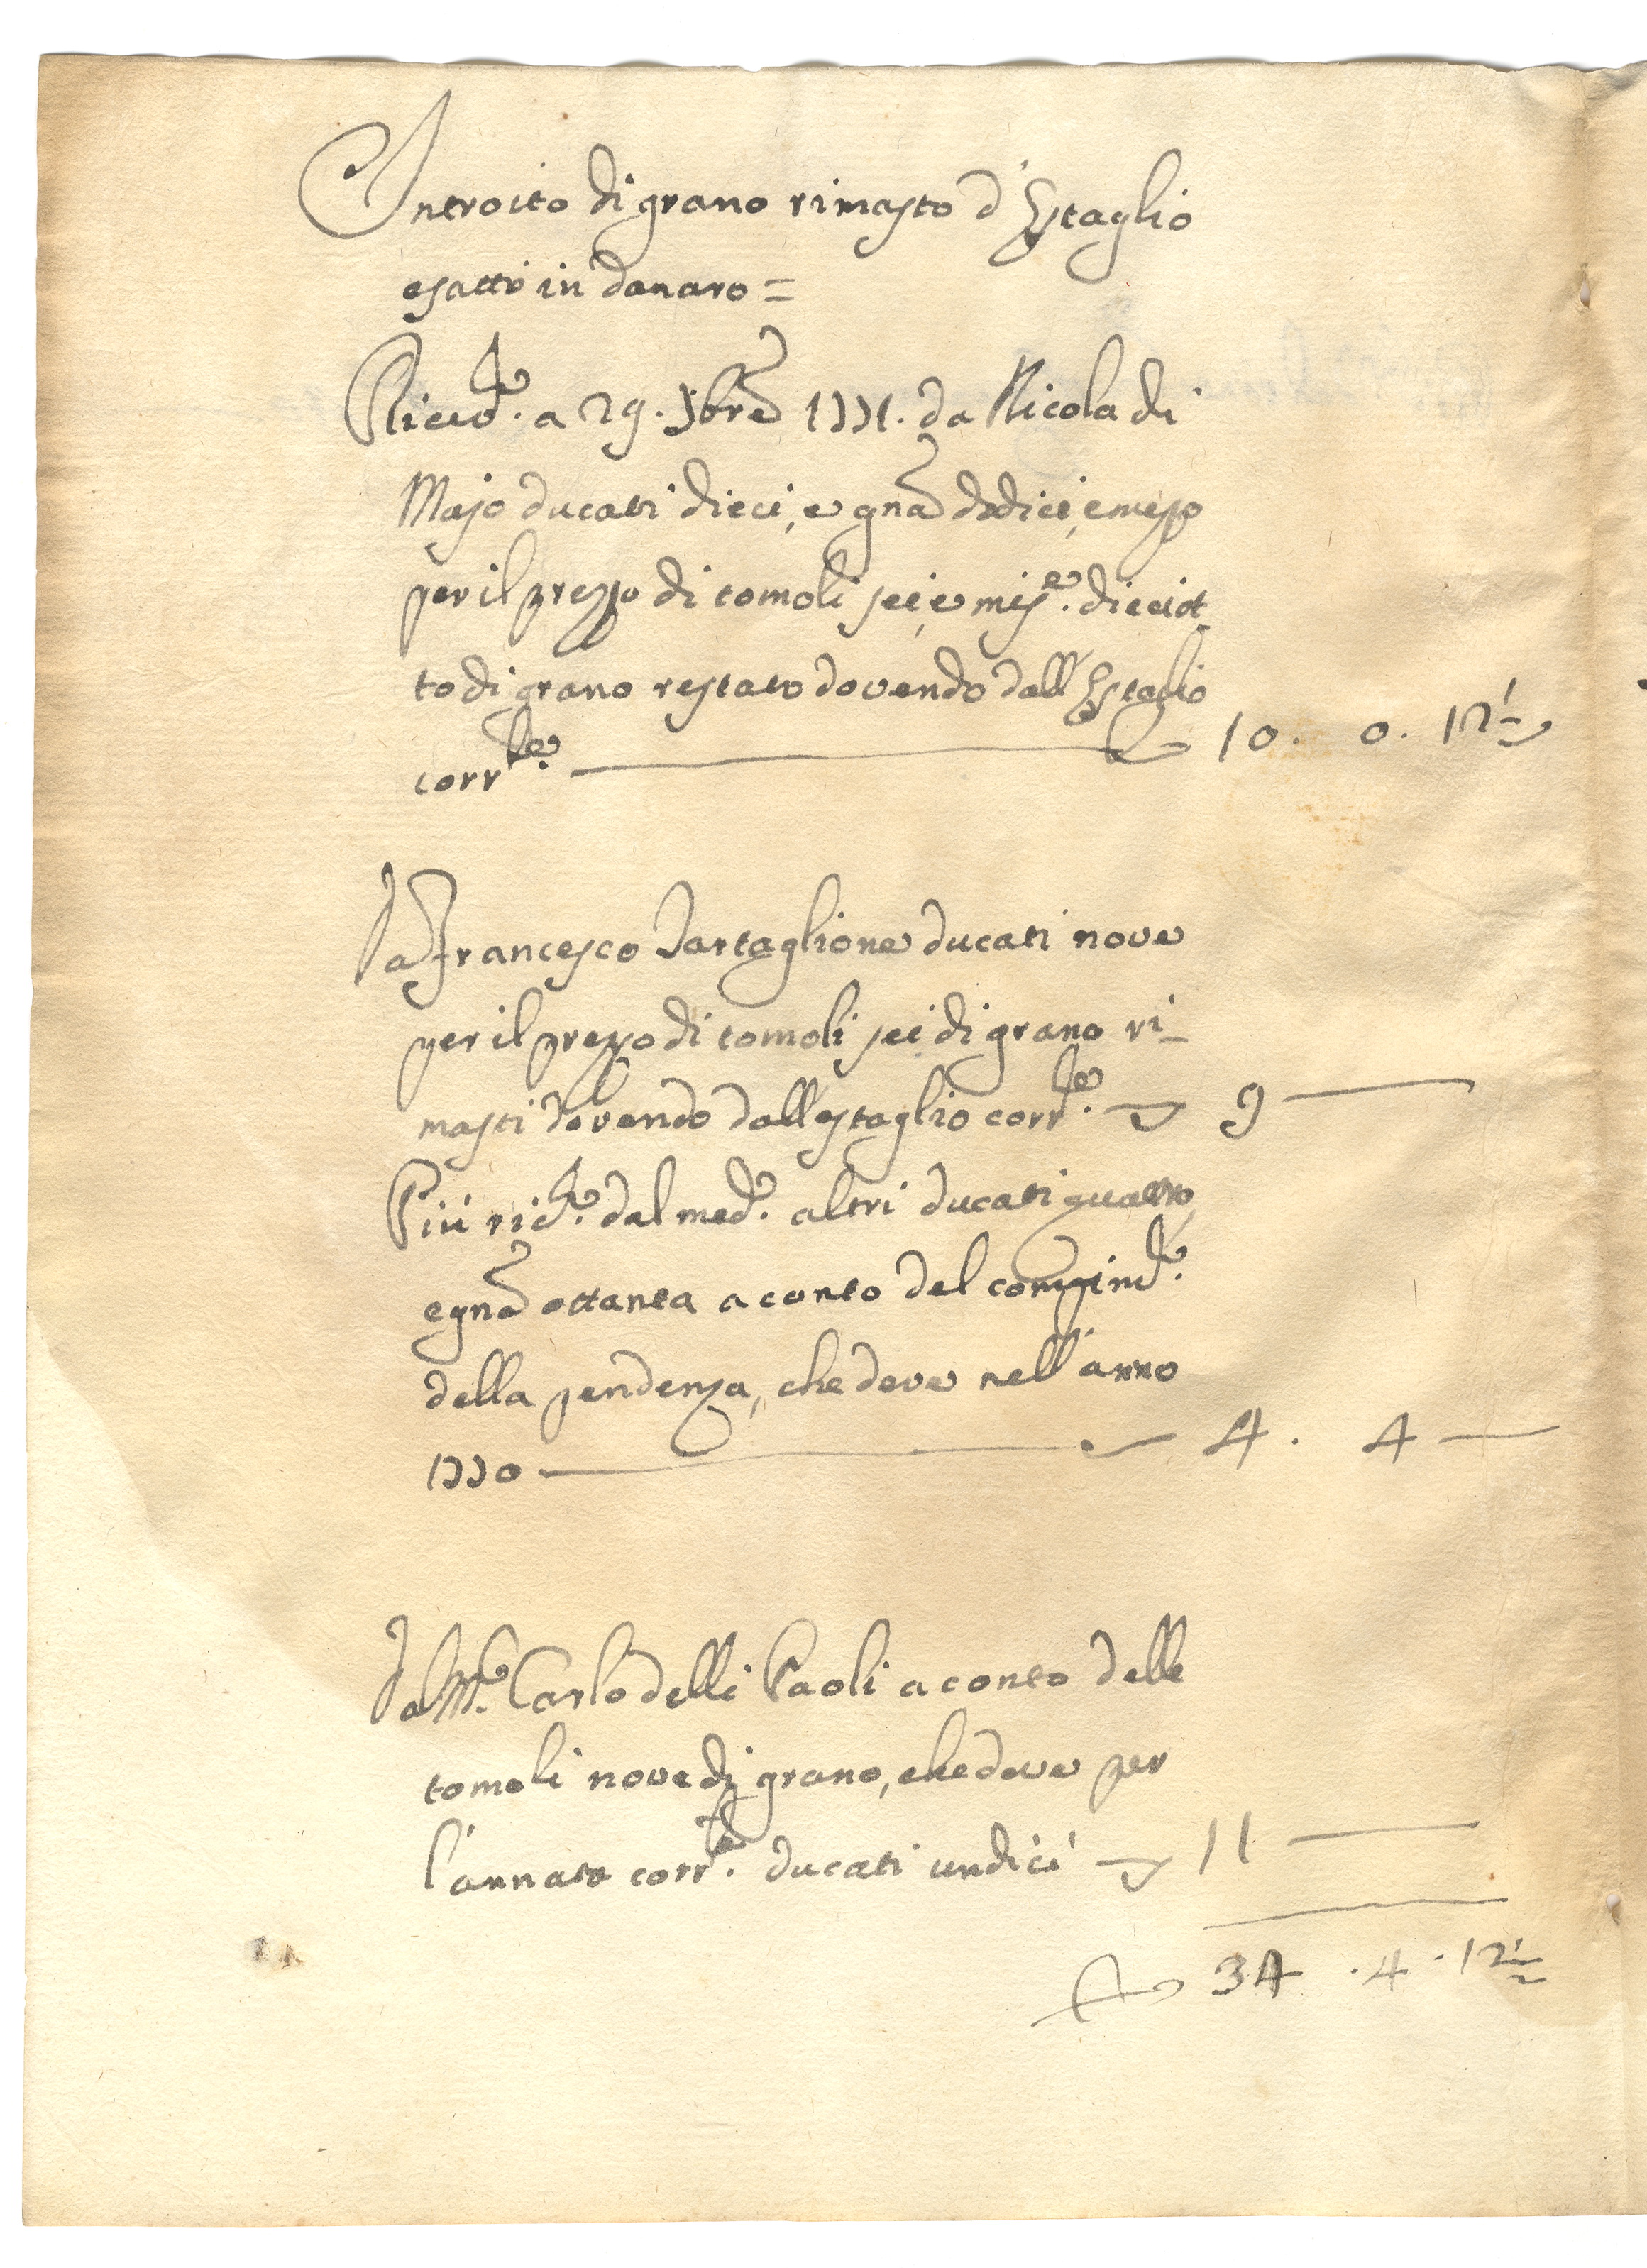 Introito di grano rimasto d'Estaglio
esatto in danaro =
Ricev.^to a 29. 7bre 1771. da Nicola di
Majo ducati dieci, e gna dodici, e mezo
per il prezzo di tomoli sei, e mis.^e dieciot
to di grano restato dovendo dall'Estaglio
corr.^te 10. 0. 12½
Da Francesco Tartaglione ducati nove
per il prezzo di tomoli sei di grano ri-
masti dovendo dall'estaglio corr.^te 9
Più ric.^to dal med.^o altri ducati quattro,
e gna ottanta a conto del compim.^to
della pendenza, che deve nell'anno
1770 4. 4
Da M.^o Carlo delli Paoli a conto delle
tomoli nove di grano, che deve per
l'annata corr.^te ducati undici 11
34. 4. 12½